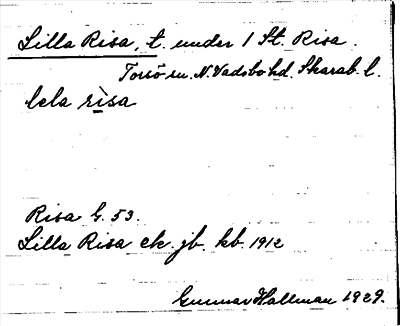 Lilla Risa, t. under 1 St. Risa.
Torsö sn. N. Vadsbo hd. Skarab. l.
lɩla rìsa
Risa G. 53.
Lilla Risa ek. jb. kb. 1912
Gunnar Hallman 1929.